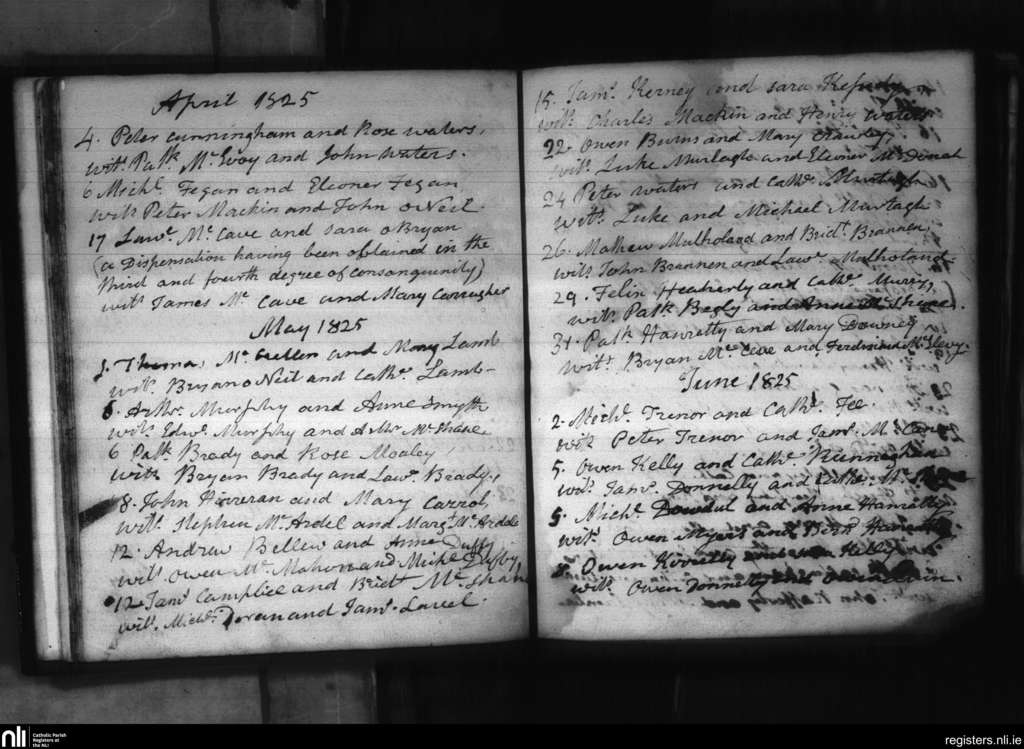 April 1825
4. Peter Cunningham and Rose Waters,
witt Patk Mc Evoy and John Waters.
6 Michl. Fegan and Eleoner Fegan
with Peter Mackin and John O Neil.
17 Lawe. Mc Cave and Sara O Bryan
(a Dispensation having been obtained in the
third and fourth degree of consanguinity)
witt James Mc Cave and Mary Carragher
May 1825
1. Thomas Mc and Mary Lamb
witt. Bryan O Neil and Cathe. Lamb
Arthr. Murphy and Anne Smyth
witt. Edwd. Murphy and Mc Shane
6 Patk Brady and Rose
with Bryan Brady and Lawe. Brady,
8. John and Mary Carrol,
witt. Stephen Mc Ardel and Margt. Mc Ardele
12. Andrew Bellew and Anne Duffy
witt Owen Mc Mahon and Michl Duffy
12. Jams. Camplice and Bridt Mc Shan
witt. Michl. Doran and Jams.
15. Jams. Kerney and Sara
with Charles Mackin and Henry Waters
22. Owen Burns and Mary
witt. Luke Murtagh and Eleoner Mc
24 Peter Waters and Cathe. Murtagh
witt. Luke and Michael Murtagh
26. Mathew Mulholand and Bridt. Brannen,
with John Brannen and Lawe. Mulholand
29. Felix and Cathe. Murry,
witt. Patk Begly and Anne Mc Shane.
31. Patk Hanretty and Mary Downey
witt. Bryan Mc Cave and Mc
June 1825
2. Michl. Trenor and Cathe. Fee.
with Peter Trenor and Jams. Mc Cann
5. Owen Kelly and Cathe.
witt. Jams. Donnelly and Mc
5. Michl. and Anne Hanratty
witt. Owen Myers and Hanratty
8 Owen and Kelly
witt. Owen Donnelly and
nli
Catholic Parish
Registers at
the NLI
registers.nli.ie